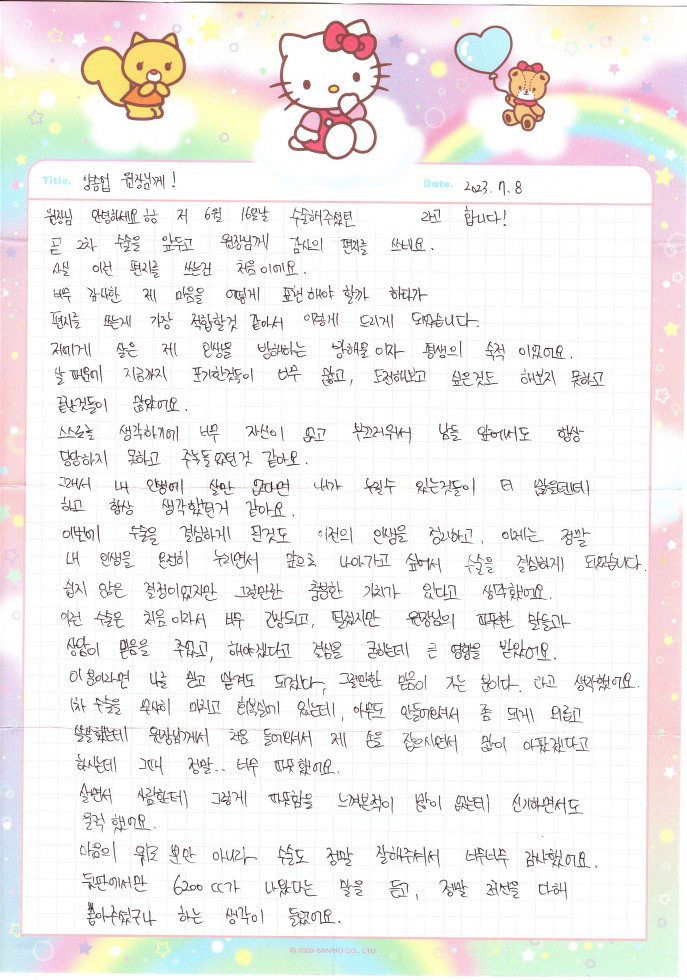 Title. 양종업 원장님께!
Date. 2023. 7. 8
원장님 안녕하세요ㅎㅎ 저 6월 16일날 수술해주셨던 라고 합니다!
곧 2차 수술을 앞두고 원장님께 감사의 편지를 쓰네요.
사실 이런 편지를 쓰는건 처음이에요.
너무 감사한 제 마음을 어떻게 표현해야 할까 하다가
편지를 쓰는게 가장 적합할것 같아서 이렇게 드리게 되었습니다.
저에게 살은 제 인생을 방해하는 방해물이자 평생의 숙적이었어요.
살 때문에 지금까지 포기한것들이 너무 많고, 도전해보고 싶은것도 해보지 못하고
끝난것들이 많았어요.
스스로를 생각하기에 너무 자신이 없고 부끄러워서 남들 앞에서도 항상
당당하지 못하고 주눅들었던것 같아요.
그래서 내 인생에 살만 없다면 내가 누릴수 있는것들이 더 많을텐데
하고 항상 생각했던거 같아요.
이번에 수술을 결심하게 된것도 이전의 인생을 정리하고, 이제는 정말
내 인생을 온전히 누리면서 앞으로 나아가고 싶어서 수술을 결심하게 되었습니다.
쉽지 않은 결정이었지만 그럴만한 충분한 가치가 있다고 생각했어요.
이런 수술은 처음이라서 너무 긴장되고, 떨렸지만 원장님의 따뜻한 말들과
상담이 믿음을 주었고, 해야겠다고 결심을 굳히는데 큰 영향을 받았어요.
이 분이라면 나를 믿고 맡겨도 되겠다, 그럴만한 믿음이 가는 분이다. 라고 생각했어요.
1차 수술을 무사히 마치고 회복실에 있는데, 아무도 안들어와서 좀 되게 외롭고
쓸쓸했는데 원장님께서 처음 들어와서 제 손을 잡으시면서 많이 아팠겠다고
하시는데 그때 정말.. 너무 따뜻했어요.
살면서 사람한테 그렇게 따뜻함을 느껴본적이 많이 없는데 신기하면서도
울컥 했어요.
마음의 위로 뿐만 아니라 수술도 정말 잘해주셔서 너무너무 감사했어요.
뒷판에서만 6200cc가 나왔다는 말을 듣고, 정말 최선을 다해
뽑아주셨구나 하는 생각이 들었어요.
© 2023 SANRIO CO., LTD.